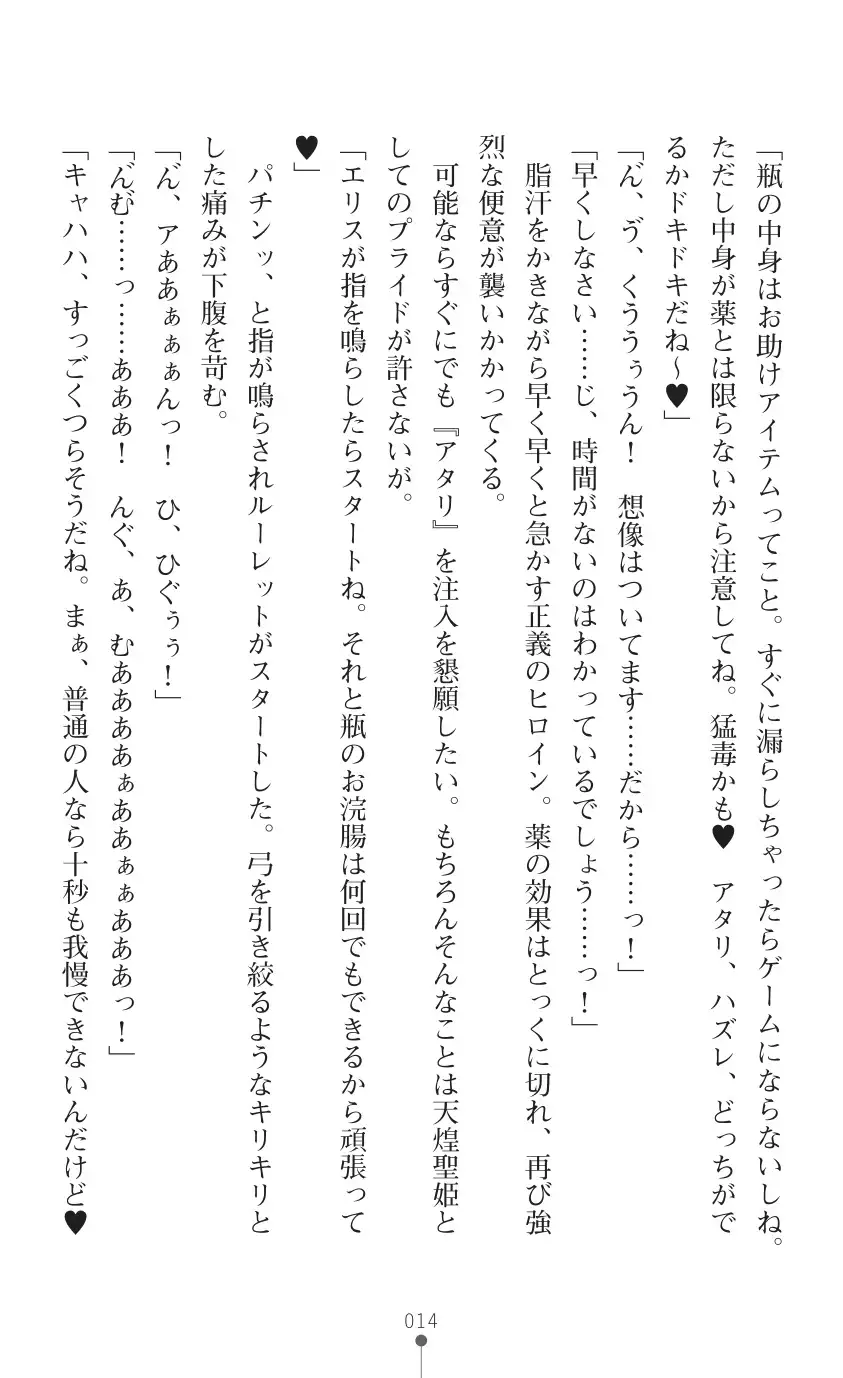 「瓶の中身はお助けアイテムってこと。すぐに漏らしちゃったらゲームにならないしね。
ただし中身が薬とは限らないから注意してね。猛毒かも♥　アタリ、ハズレ、どっちがで
るかドキドキだね～♥」
「ん、ゔ、くううぅうん！　想像はついてます……だから……っ！」
「早くしなさい……じ、時間がないのはわかっているでしょう……っ！」
　脂汗をかきながら早く早くと急かす正義のヒロイン。薬の効果はとっくに切れ、再び強
烈な便意が襲いかかってくる。
　可能ならすぐにでも『アタリ』を注入を懇願したい。もちろんそんなことは天煌聖姫と
してのプライドが許さないが。
「エリスが指を鳴らしたらスタートね。それと瓶のお浣腸は何回でもできるから頑張って
♥」
　パチンッ、と指が鳴らされルーレットがスタートした。弓を引き絞るようなキリキリと
した痛みが下腹を苛む。
「ん゛、アああぁぁぁんっ！　ひ、ひぐぅぅ！」
「ん゛む……っ……あああ！　んぐ、あ、むああああぁああぁぁあああっ！」
「キャハハ、すっごくつらそうだね。まぁ、普通の人なら十秒も我慢できないんだけど♥
014